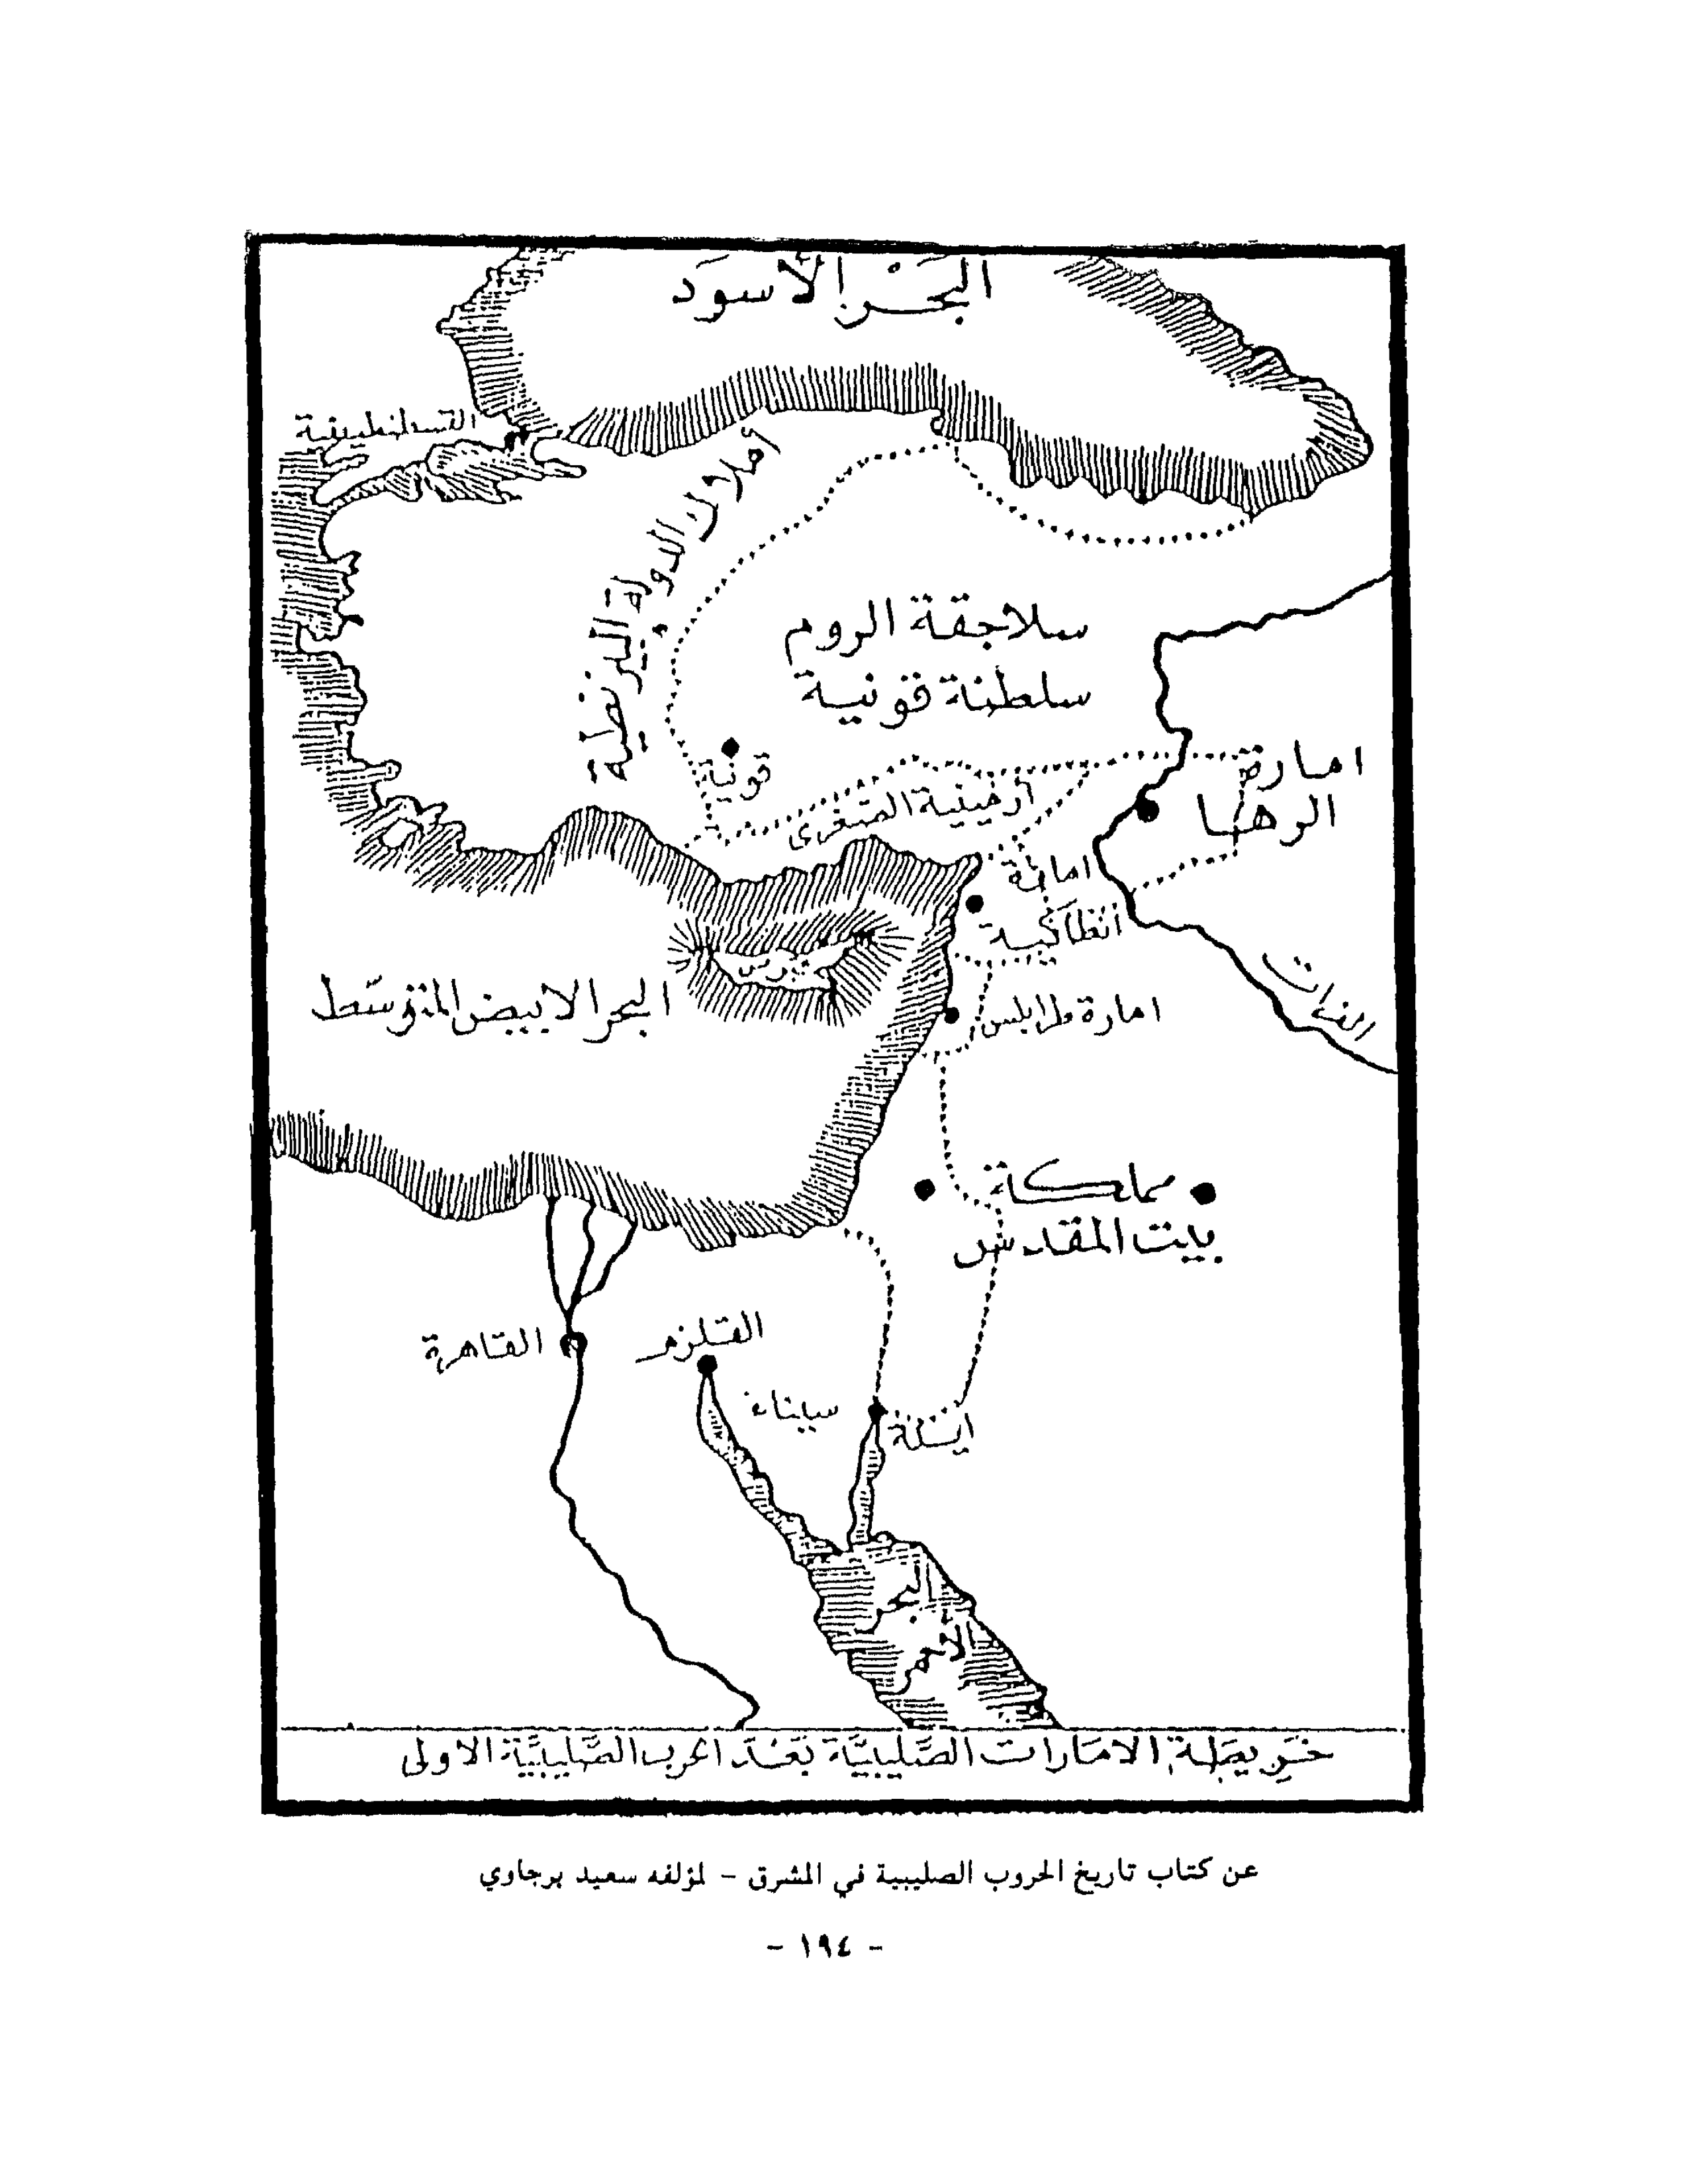 البَحْر الأسوَد
القسطنطينية
أملاك الدولة البيزنطية
سلاجقة الروم
سلطنة قونية
قونية
امارة
الرها
أرمينية الصغرى
امارة
أنطاكية
قبرس
البحر الابيض المتوسّط
امارة طرابلس
الفرات
مملكة
بيت المقدس
القاهرة
القلزم
سيناء
ايلة
البحر
الأحمر
خَريطَة الامَارات الصَّليبيَّة بَعْدَ الحرب الصَّليبيَّة الاولى
عن كتاب تاريخ الحروب الصليبية في المشرق - لمؤلفه سعيد برجاوي
- ١٩٤ -